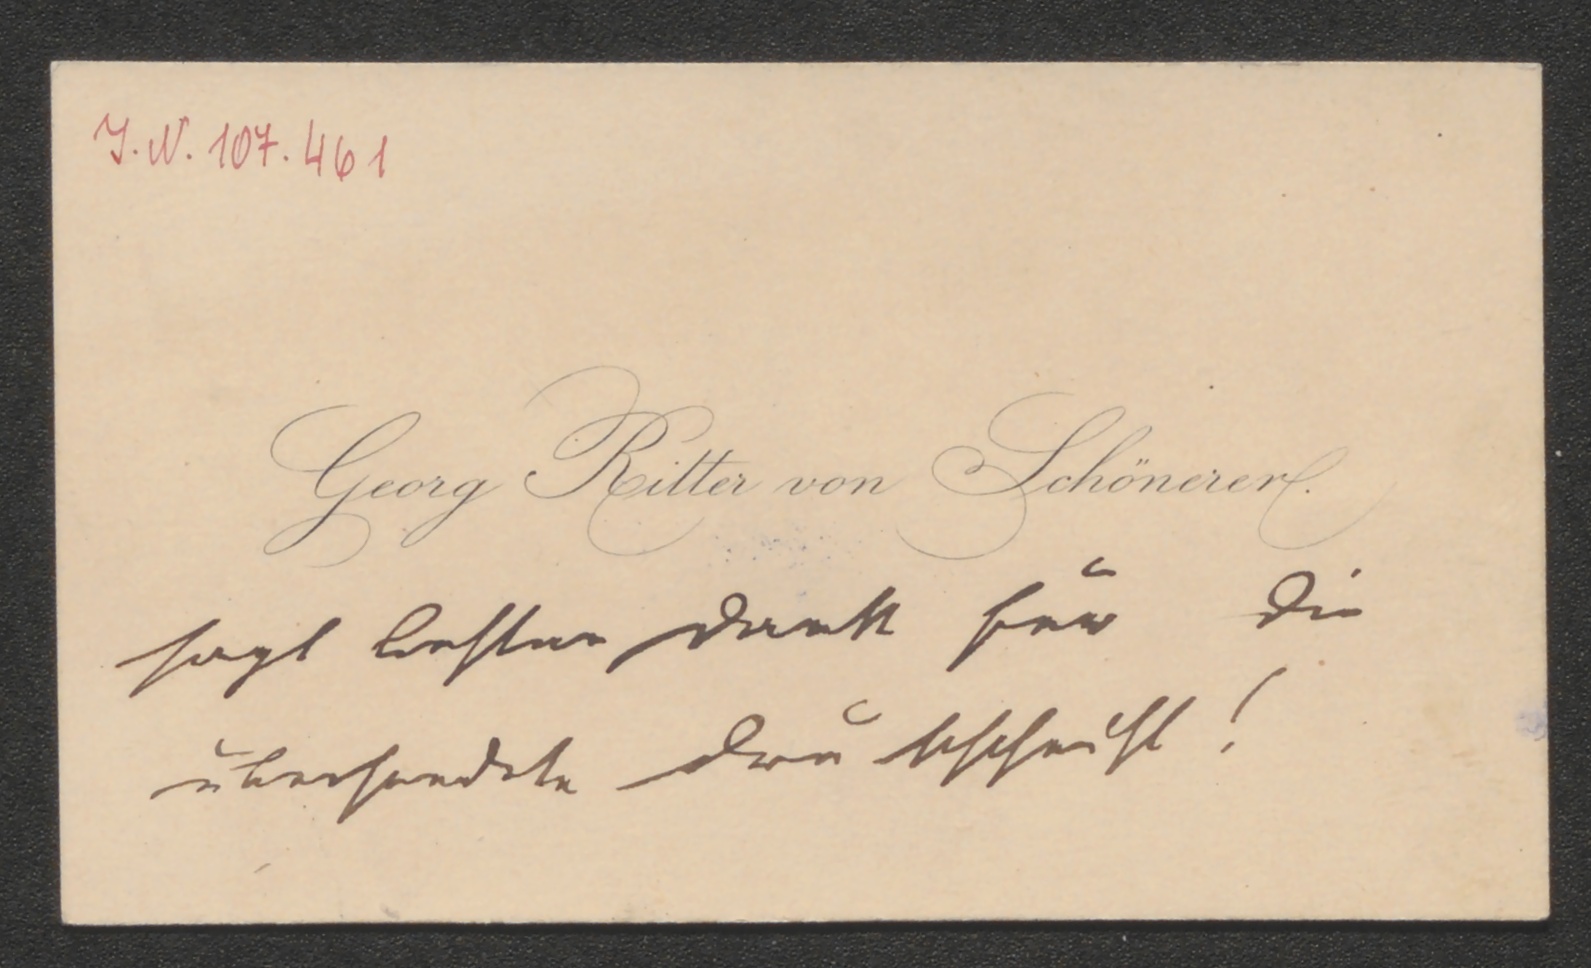 J. N. 107.461
Georg Ritter von Schönerer.
sagt besten Dank für die
übersendete Druckschrift!